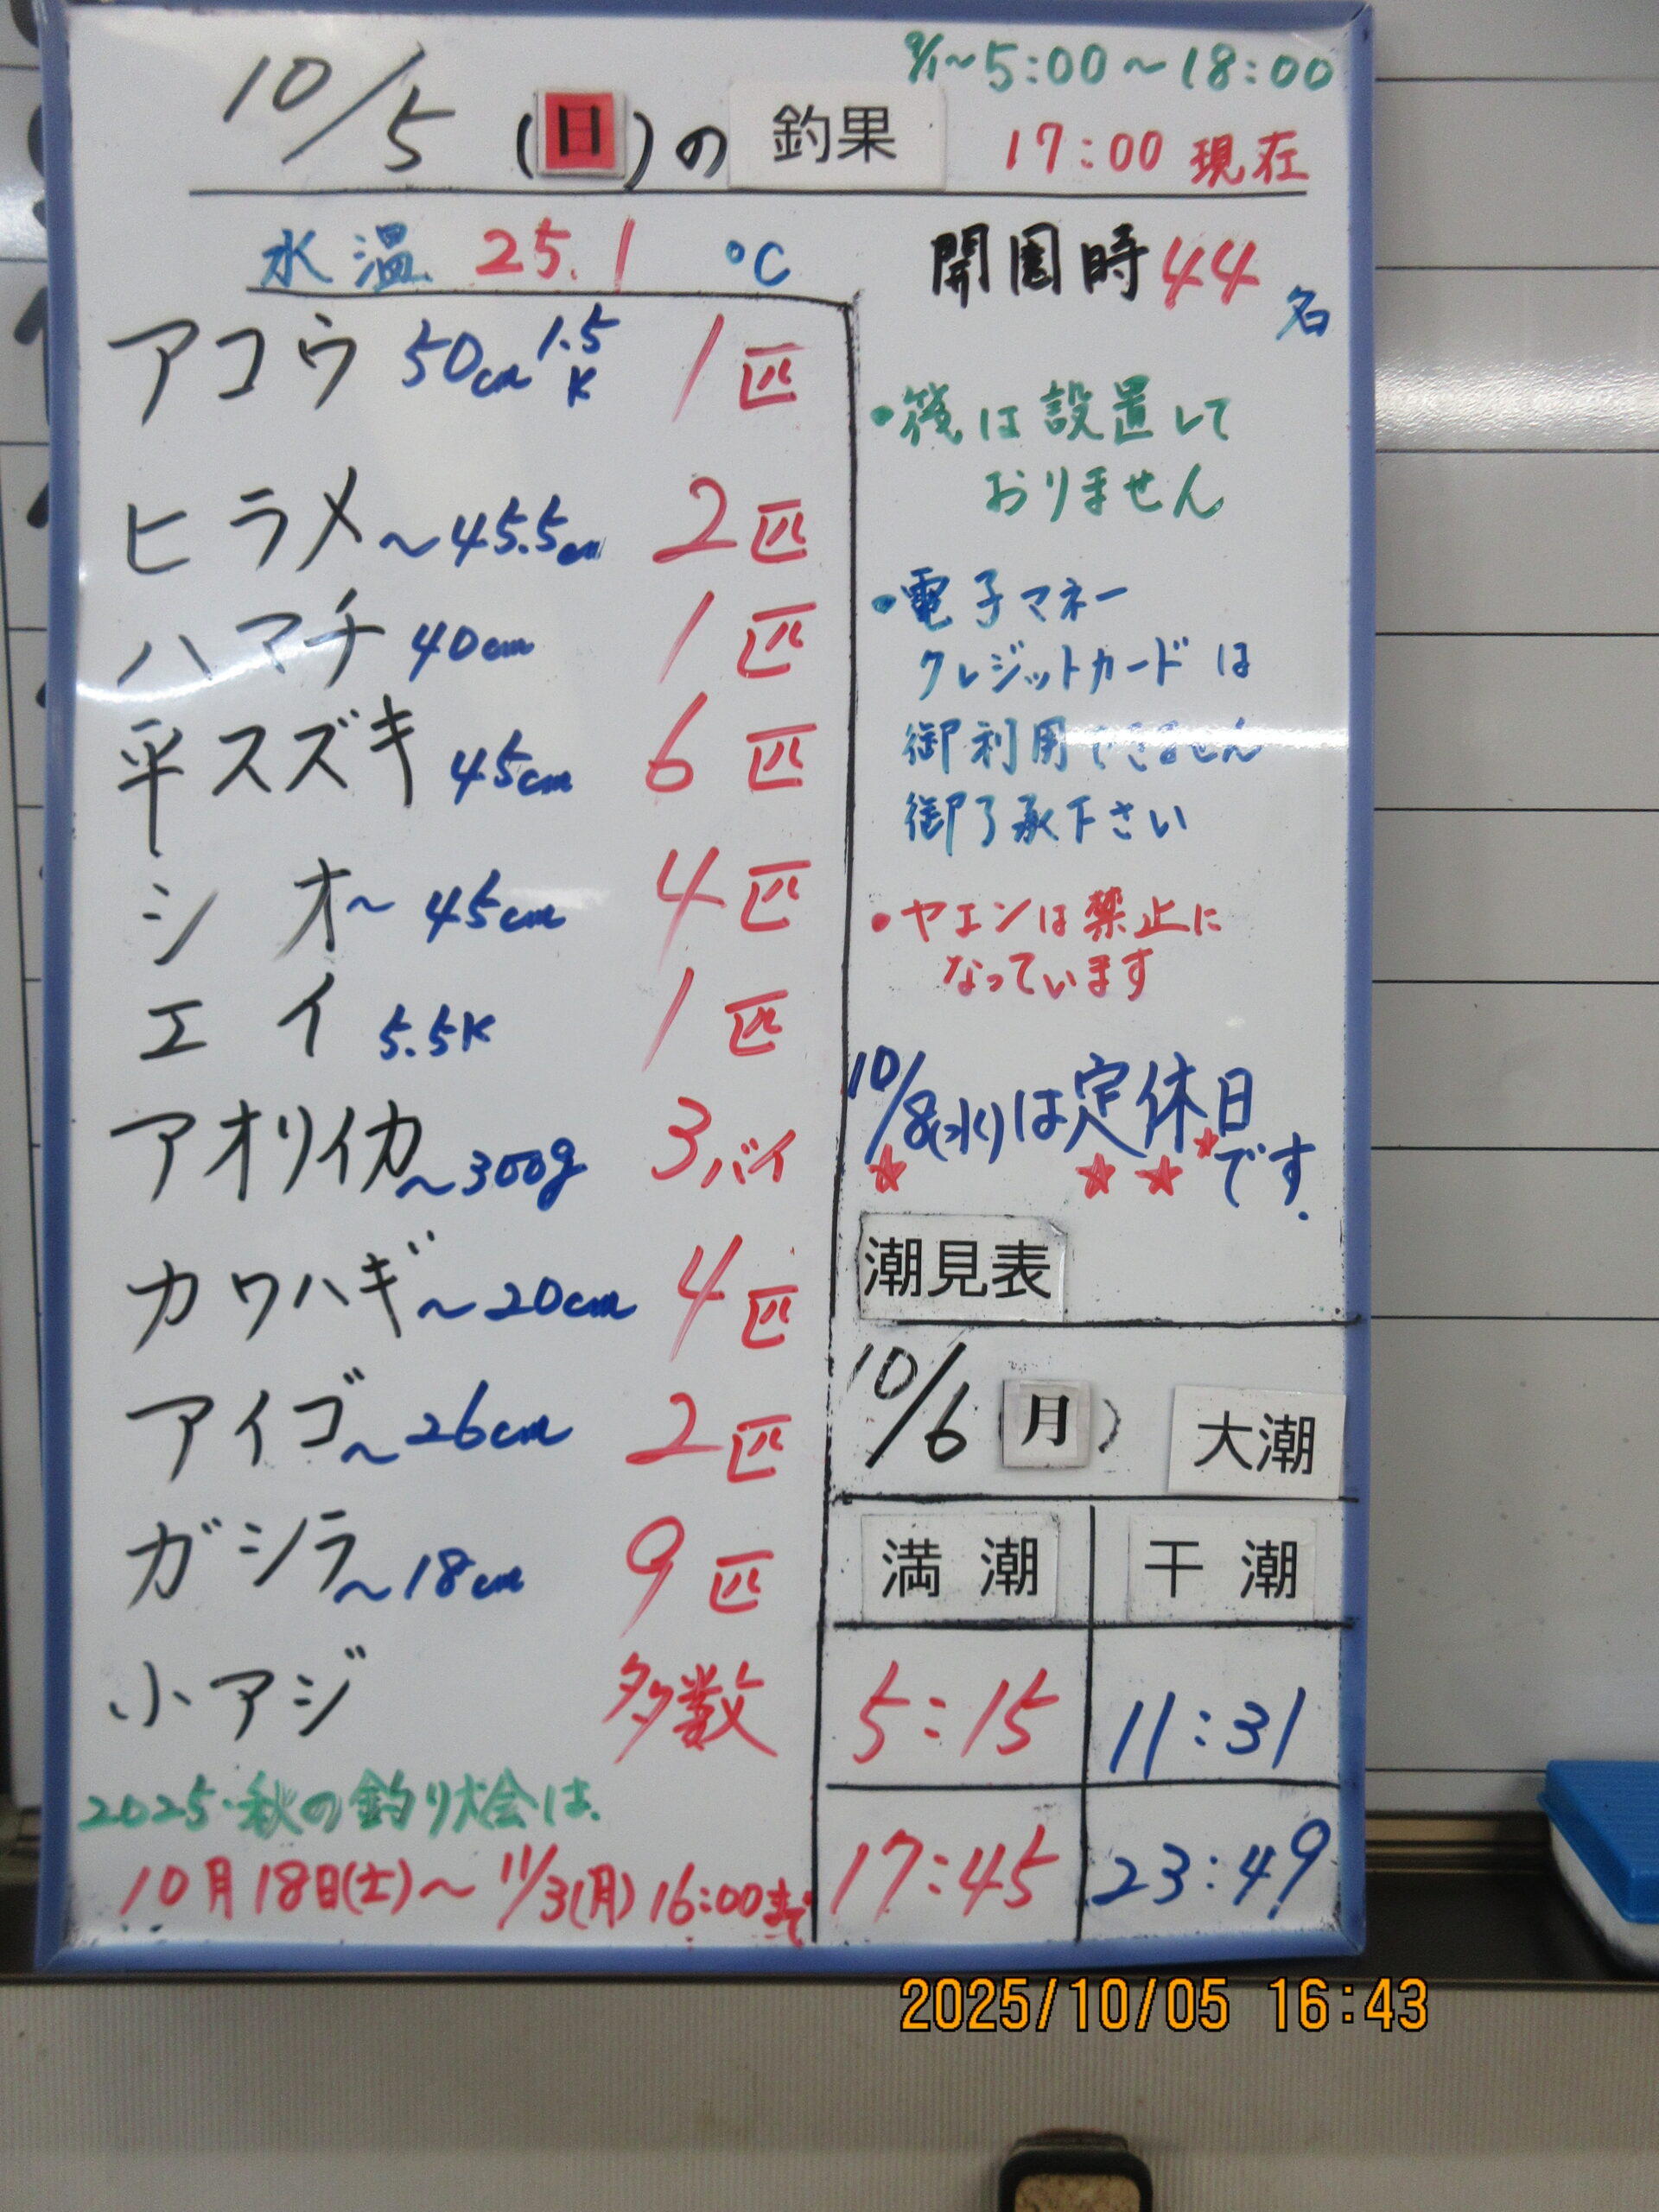 9/1~5:00~18:00
10/5 (日)の 釣果 17:00 現在
水温 25.1 ℃
アコウ 50cm 1.5K 1匹
ヒラメ~45.5cm 2匹
ハマチ 40cm 1匹
平スズキ 45cm 6匹
シオ~45cm 4匹
エイ 5.5K 1匹
アオリイカ~300g 3バイ
カワハギ~20cm 4匹
アイゴ~26cm 2匹
ガシラ~18cm 9匹
小アジ 多数
2025.秋の釣り大会は.
10月18日(土)~11/3(月)16:00まで
開園時44名
・筏は設置して
おりません
・電子マネー
クレジットカードは
御利用できません
御了承下さい
・ヤエンは禁止に
なっています
10/8(水)は定休日
です.
潮見表
10/6 (月) 大潮
満潮 干潮
5:15 11:31
17:45 23:49
2025/10/05 16:43